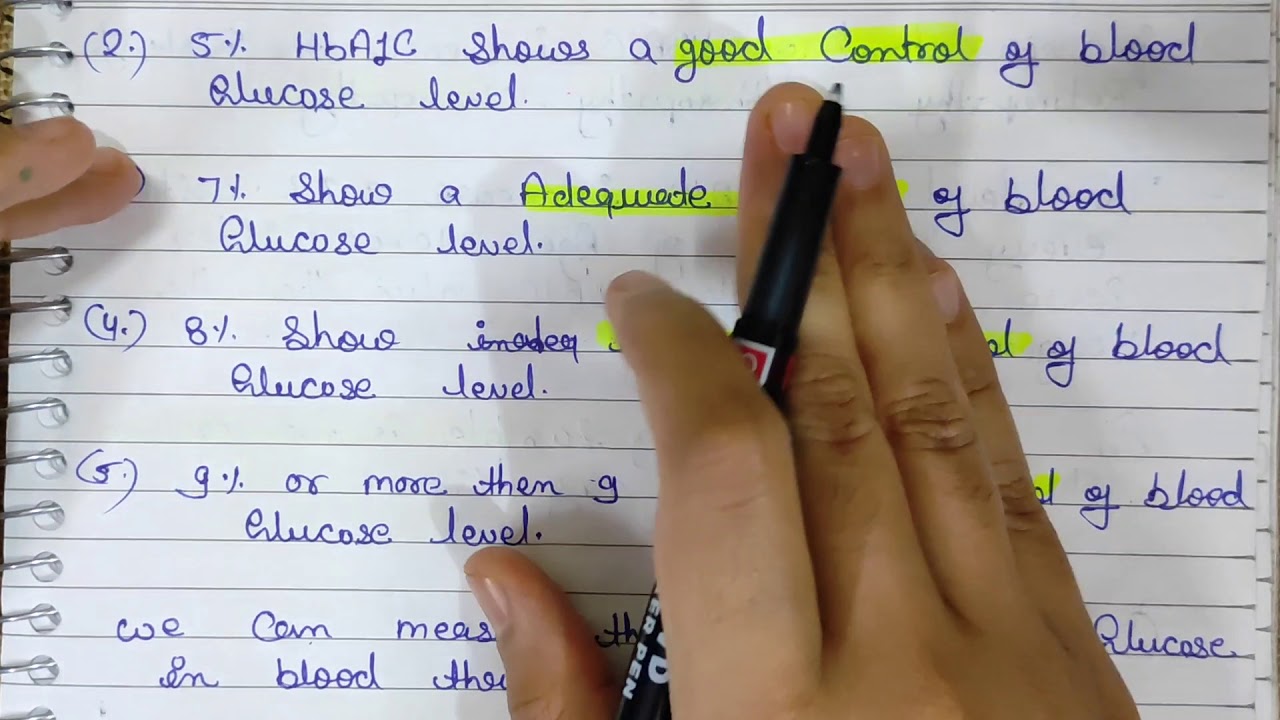 (2.) 5% HbA1C shows a good Control of blood
Glucose level.
7% Show a Adequate of blood
Glucose level.
(4.) 8% Show of blood
Glucose level.
(5.) 9% or more then 9 of blood
Glucose level.
we Can Glucose
in blood
PEN